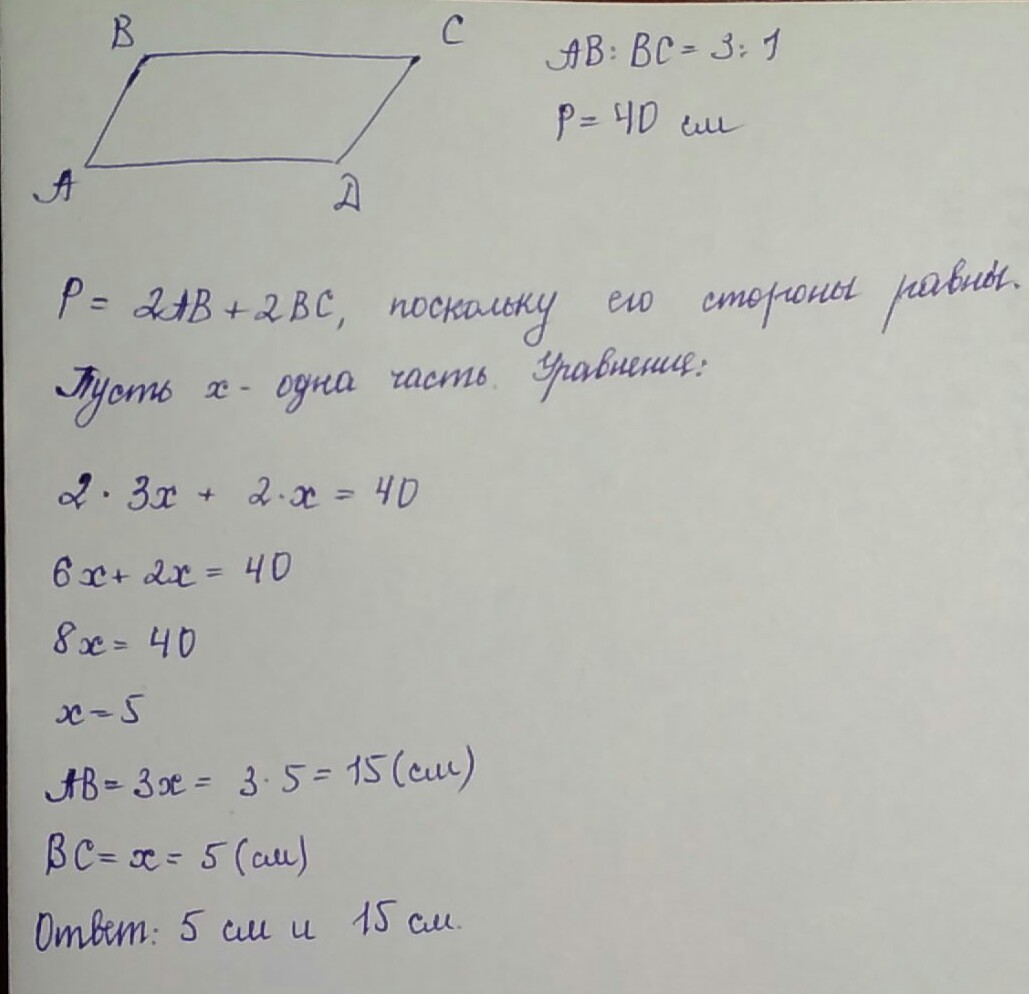 B
C
AB : BC = 3 : 1
P = 40 см
A
D
P = 2AB + 2BC, поскольку его стороны равны.
Пусть x - одна часть. Уравнение:
2 · 3x + 2 · x = 40
6x + 2x = 40
8x = 40
x = 5
AB = 3x = 3 · 5 = 15 (см)
BC = x = 5 (см)
Ответ: 5 см и 15 см.